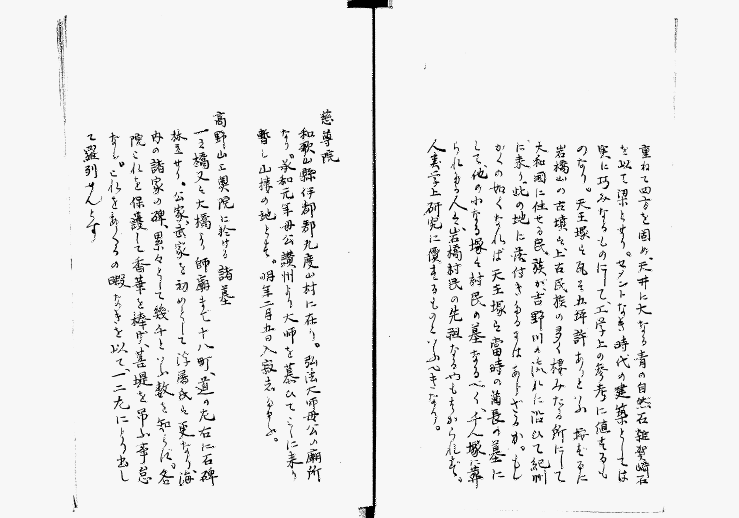 重ねて四方を固め、天井に大なる青の自然石雑賀崎石
を以て梁とせり。セメントなき時代の建築としては
実に巧みなるものにして、工学上の参考に値するも
のなり。天王塚は瓦そ五坪許ありといふ
岩橋山の古墳は、上古民族の多く棲みたる所にして
大和国に住せる民族が吉野川の流れに沿ひて紀州
に来り、此の地に落付きたるにはあらざるか。もし
かくの如くなれば天王塚は当時の酋長の墓に
して、他の小なる塚は村民の墓なるべく、千人塚に葬
られたる人々は岩橋村民の先祖なるやもはかられず。
人類学上研究に價するものといふべきなり。
慈尊院
和歌山縣伊都郡九度山村に在り。弘法大師母公の廟所
なり。承和元年母公讃州より大師を慕ひてここに来り
暫し山棲の地とす。明年二月五日入寂
高野山上奥院に於ける諸墓
一の橋又は大橋より師廟まで十八町、道の左右に石碑
林立せり。公家武家を初めとして浮屠氏は更なり、海
内の諸家の碑、累々として幾千といふ数を知らず。各
院これを保護して香華を捧げ、菩提を弔ふ事怠
なし。これをあぐるの暇なきを以て、一二左により出し
て羅列せんとす